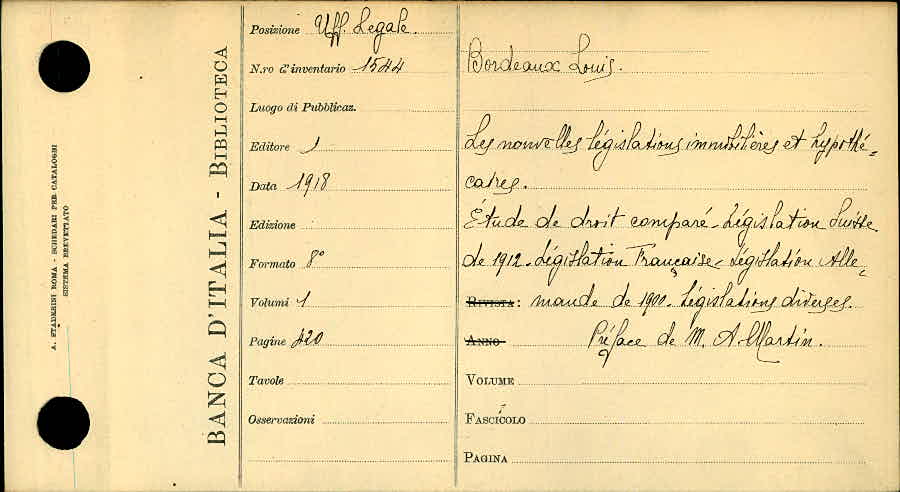 A. STADERINI ROMA - SCHEDARI PER CATALOGHI
SISTEMA BREVETTATO
BANCA D'ITALIA - BIBLIOTECA
Posizione Uff. Legale.
N.ro d'inventario 1544
Luogo di Pubblicaz.
Editore 1
Data 1918
Edizione
Formato 8°
Volumi 1
Pagine 420
Tavole
Osservazioni
Bordeaux Louis.
Les nouvelles législations immobilières et hypothé=
caires.
Étude de droit comparé. Législation Suisse
de 1912. Législation Française. Législation Alle=
RIVISTA: mande de 1900. Législations diverses.
ANNO Préface de M. A. Martin.
VOLUME
FASCICOLO
PAGINA